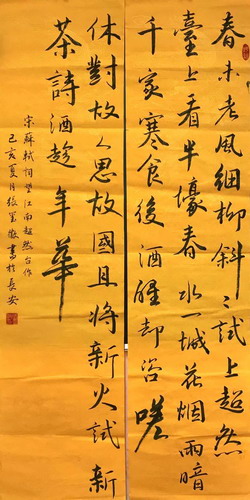 春未老風細柳斜〻試上超然
臺上看半壕春水一城花烟雨暗
千家寒食後酒醒却咨嗟
休對故人思故國且將新火試新
茶詩酒趁年華
宋蘇軾詞望江南超然台作
己亥夏月張書於長安